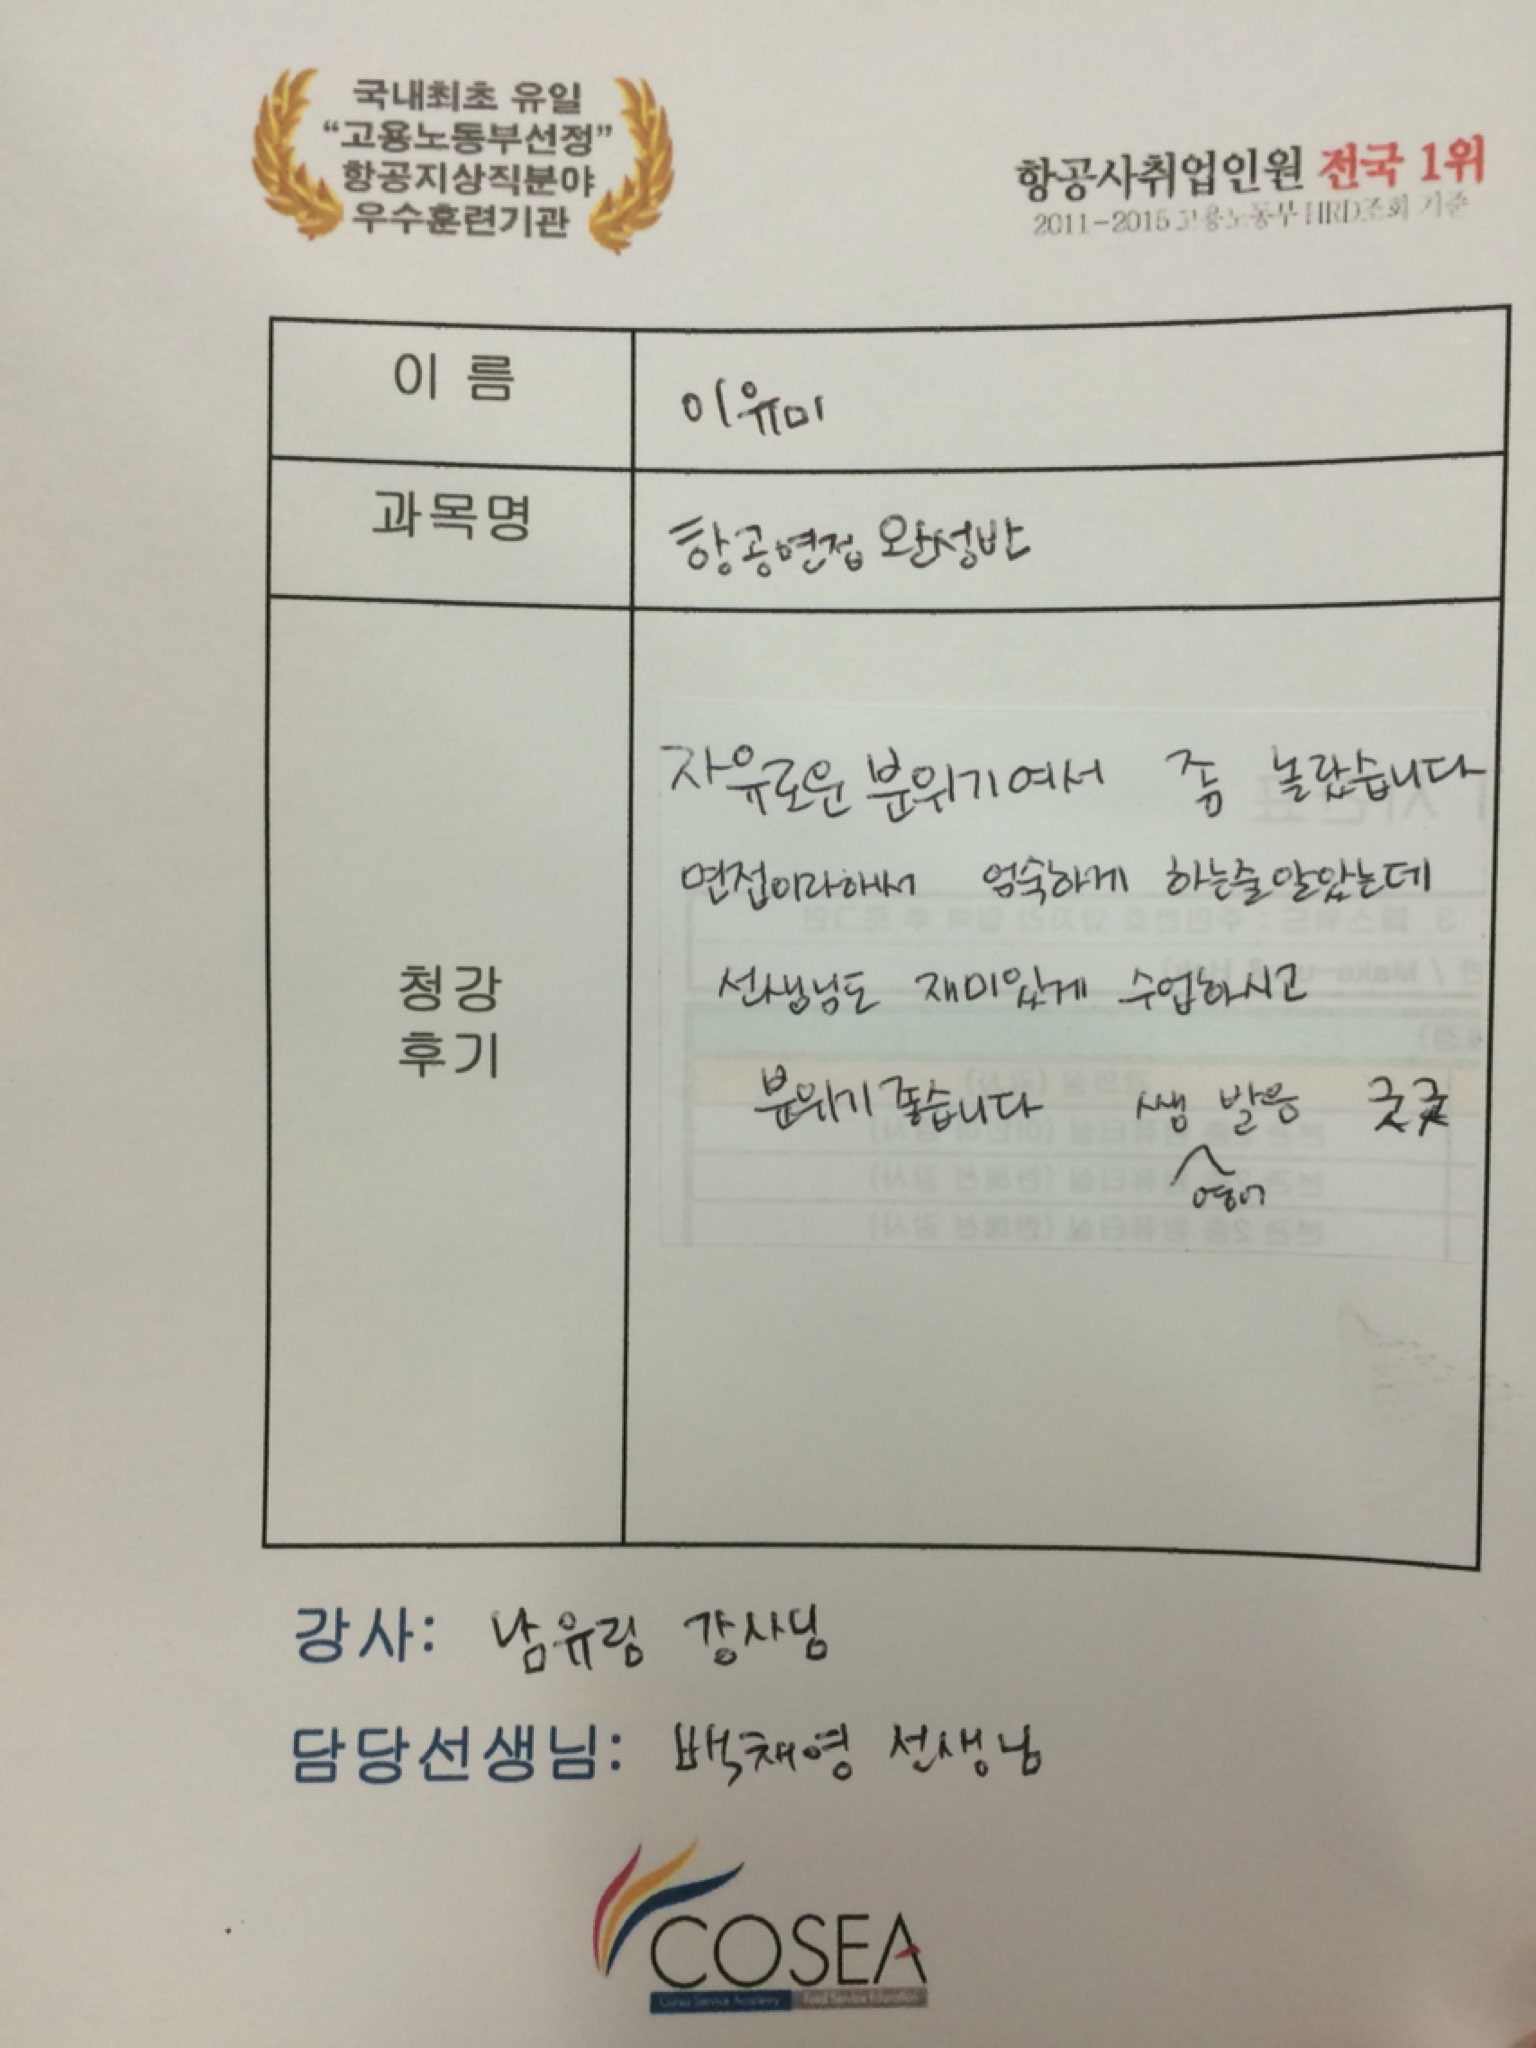 국내최초 유일
“고용노동부선정”
항공지상직분야
우수훈련기관
항공사취업인원 전국 1위
2011-2015 고용노동부 HRD조회 기준
이 름
이유미
과목명
항공면접 완성반
청강
후기
자유로운 분위기여서 좀 놀랐습니다
면접이라해서 엄숙하게 하는줄알았는데
선생님도 재미있게 수업하시고
분위기좋습니다 쌤 영어 발음 굿굿
강사: 남유림 강사님
담당선생님: 백채영 선생님
COSEA
Corea Service Academy Total Service Education